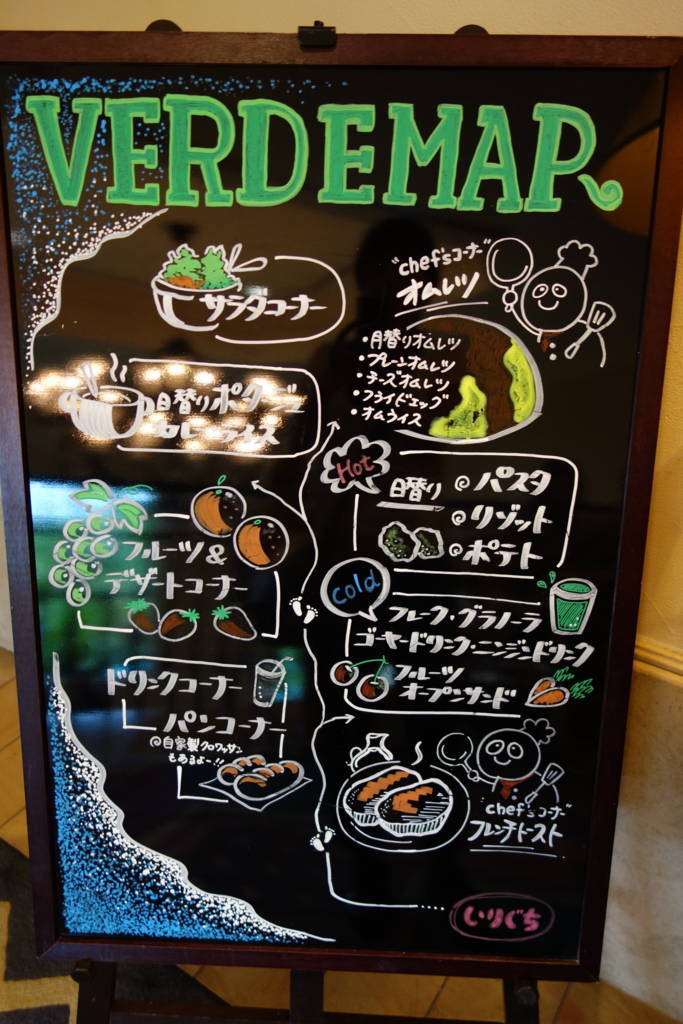 VERDEMAP
サラダコーナー
"chef'sコーナー"
オムレツ
・月替りオムレツ
・プレーンオムレツ
・チーズオムレツ
・フライドエッグ
・オムライス
日替りポタージュ
カレーライス
Hot
日替り
パスタ
リゾット
ポテト
フルーツ&
デザートコーナー
Cold
フレーク・グラノーラ
ゴーヤードリンク・ニンジンドリンク
フルーツ
オープンサンド
ドリンクコーナー
パンコーナー
@自家製クロワッサン
もあるよー!!
chef'sコーナー"
フレンチトースト
いりぐち